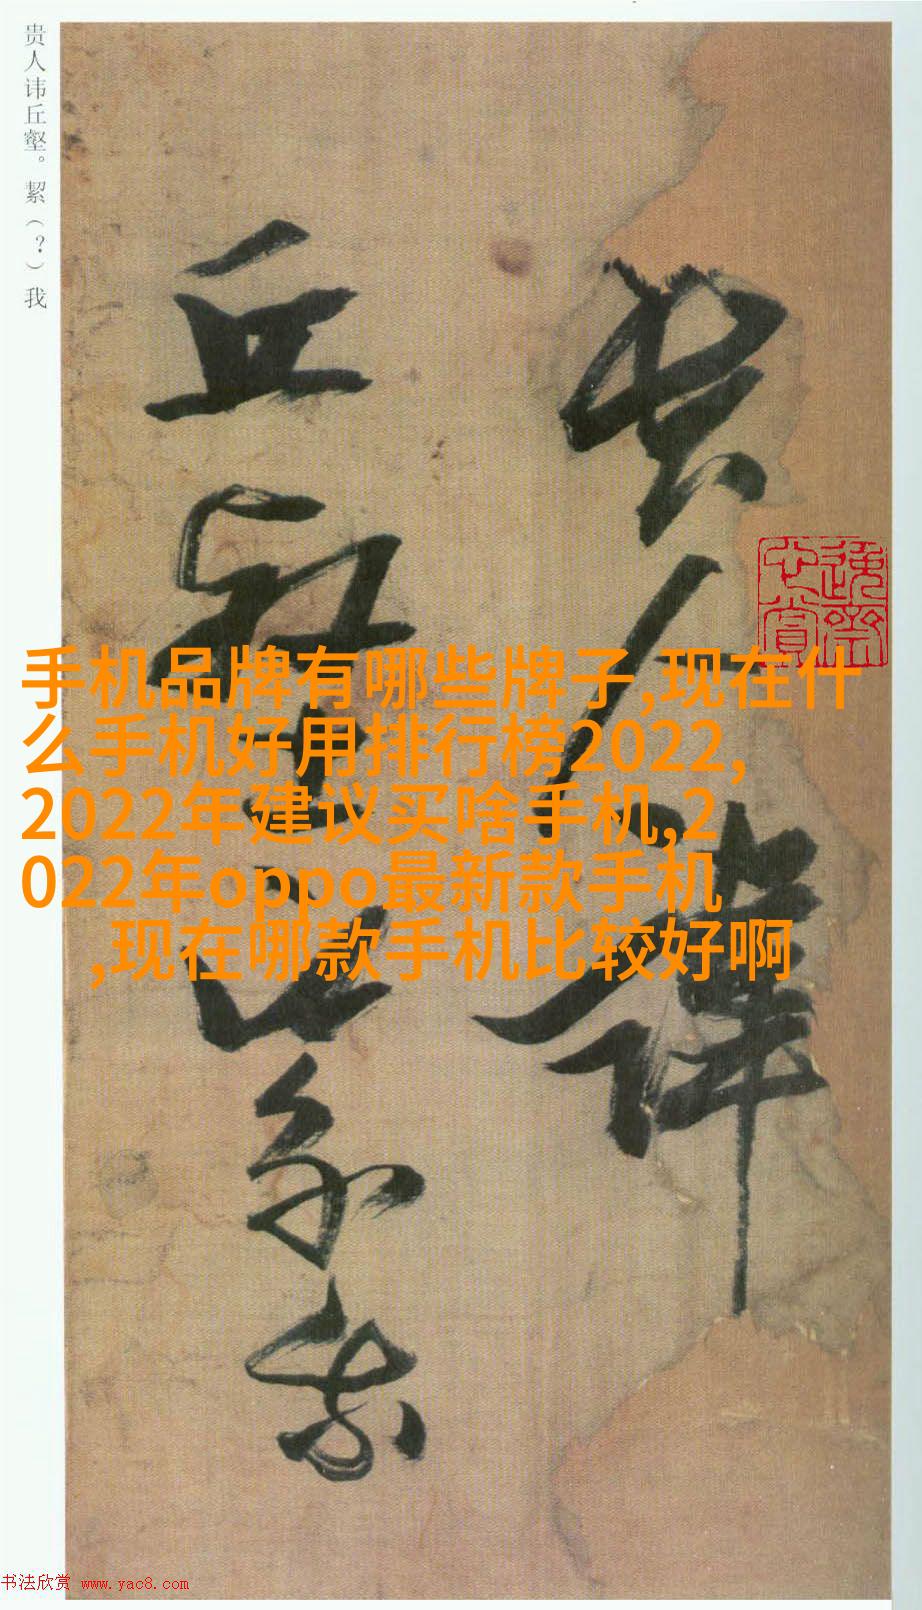 贵人讳丘壑。絜（？）我
贵人讳
丘壑絜我
手机品牌有哪些牌子,现在什
么手机好用排行榜2022,
2022年建议买啥手机,2
022年oppo最新款手机
,现在哪款手机比较好啊
书法欣赏 www.yac8.com